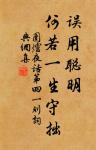 误用聪明
何若一生守拙
围炉夜话第四一则词
典网集